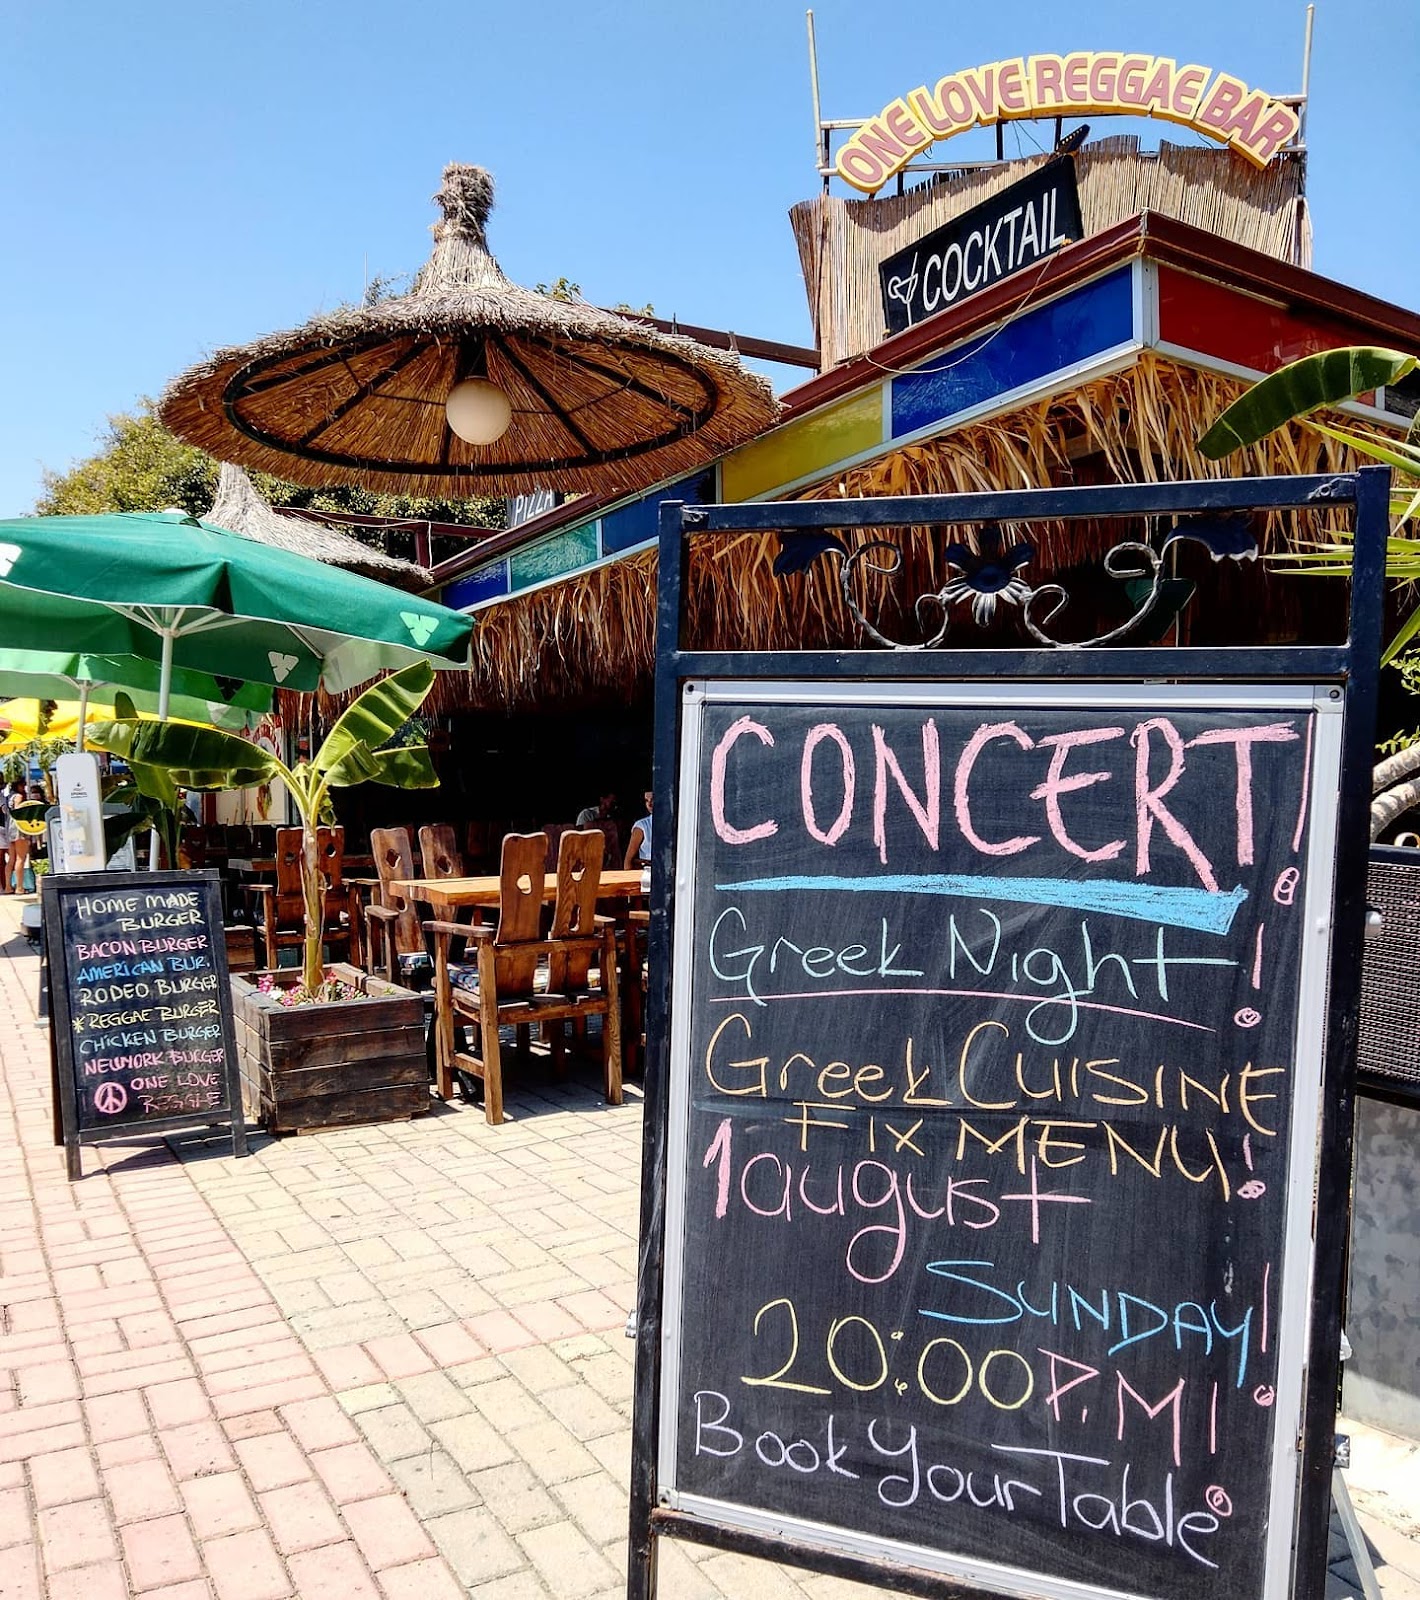 ONE LOVE REGGAE BAR
COCKTAIL
PIZZA
CONCERT!
Greek Night!
Greek CUISINE
FIX MENU!
1 august
SUNDAY!
20:00 P.M!
Book Your Table
HOME MADE
BURGER
BACON BURGER
AMERICAN BUR.
RODEO BURGER
*REGGAE BURGER
CHICKEN BURGER
NEWYORK BURGER
ONE LOVE